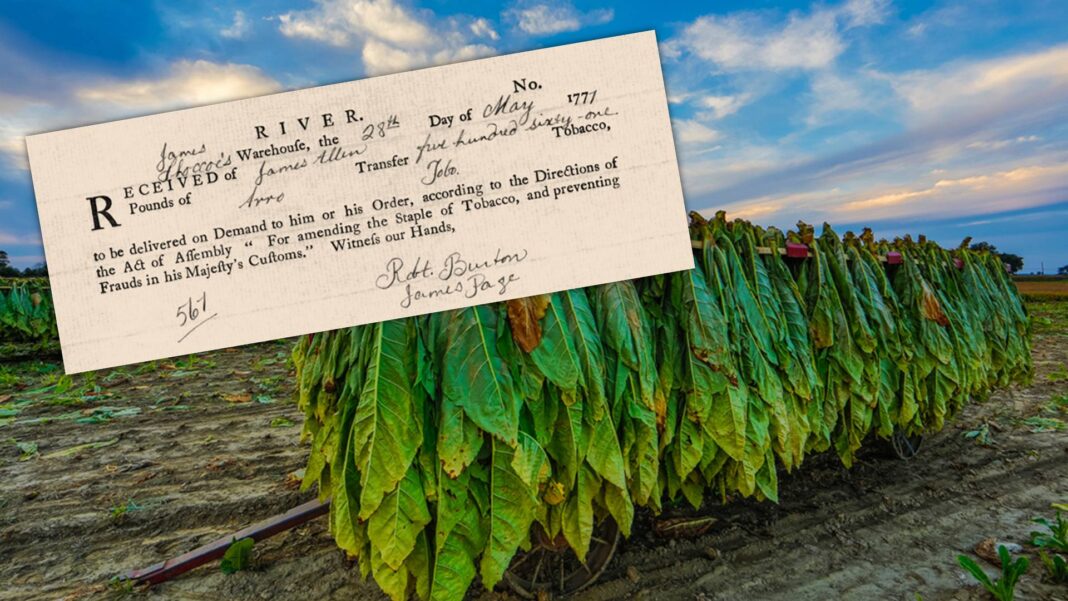 No.
James RIVER.
Shoccoe's Warehouſe, the 28th Day of May 1771
RECEIVED of James Allen Transfer five hundred sixty-one
Pounds of Arro Tobo. Tobacco,
to be delivered on Demand to him or his Order, according to the Directions of
the Act of Aſſembly “ For amending the Staple of Tobacco, and preventing
Frauds in his Majeſty's Cuſtoms.” Witneſs our Hands,
Robt. Burton
James Page
561